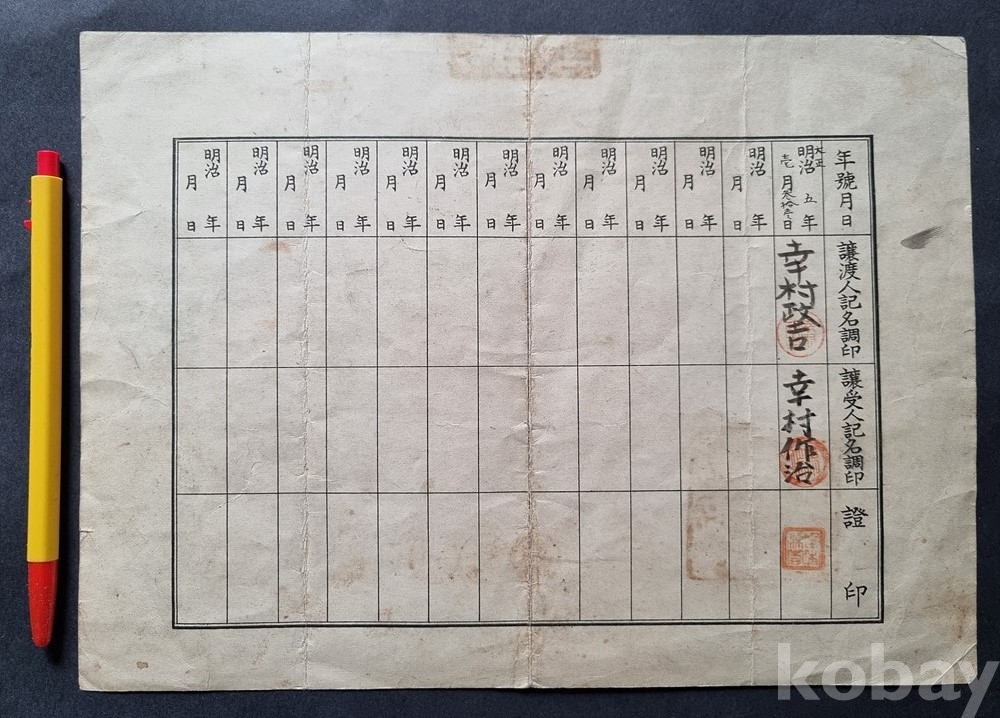 年號月日
讓渡人記名調印
讓受人記名調印
證印
大正
明治五年
壱月参拾壱日
幸村政吉
幸村作治
明治年
月日
明治年
月日
明治年
月日
明治年
月日
明治年
月日
明治年
月日
明治年
月日
明治年
月日
明治年
月日
明治年
月日
明治年
月日
明治年
月日
kobay